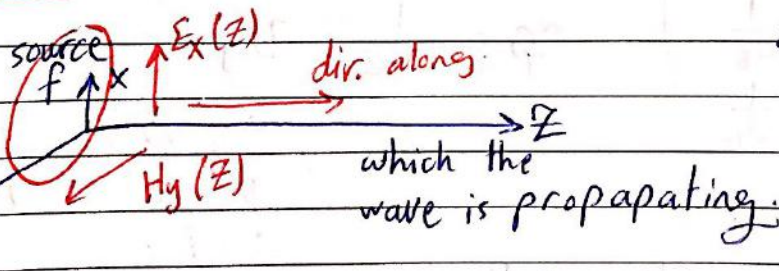 source
f
x
Ex(z)
dir. along
z
Hy(z)
which the
wave is propapating.